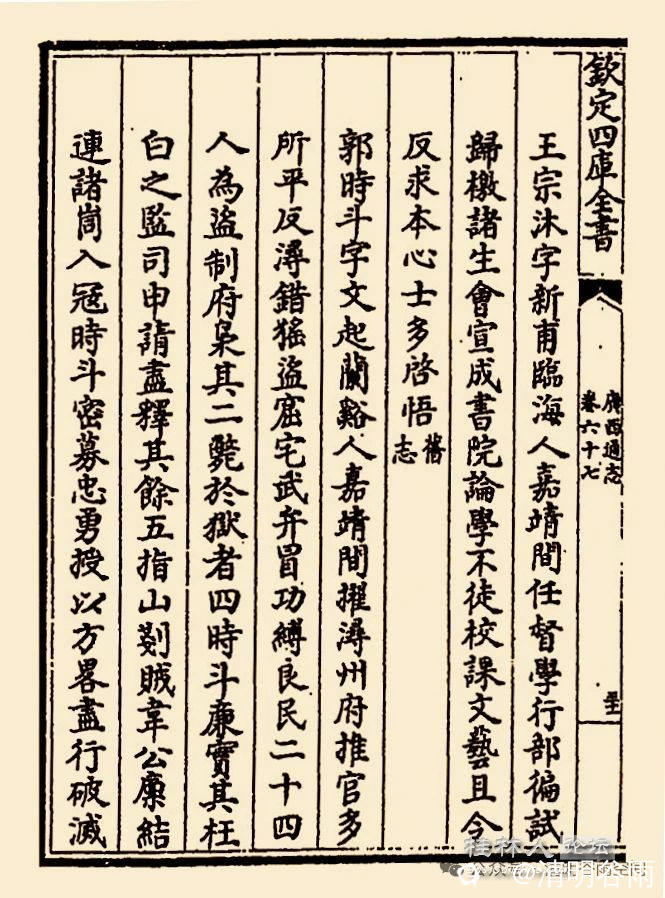 欽定四庫全書
廣西通志
卷六十七
王宗沐字新甫臨海人嘉靖間任督學行部徧試
歸檄諸生會宣成書院論學不徒校課文藝且令
反求本心士多啓悟舊志
郭時斗字文起蘭谿人嘉靖間擢潯州府推官多
所平反潯錯猺盜窟宅武弁冒功縛良民二十四
人為盜制府梟其二斃於獄者四時斗廉實其枉
白之監司申請盡釋其餘五指山剡賊韋公廩結
連諸峝入冦時斗密募忠勇授以方畧盡行破滅
桂林人论坛
@清明谷雨